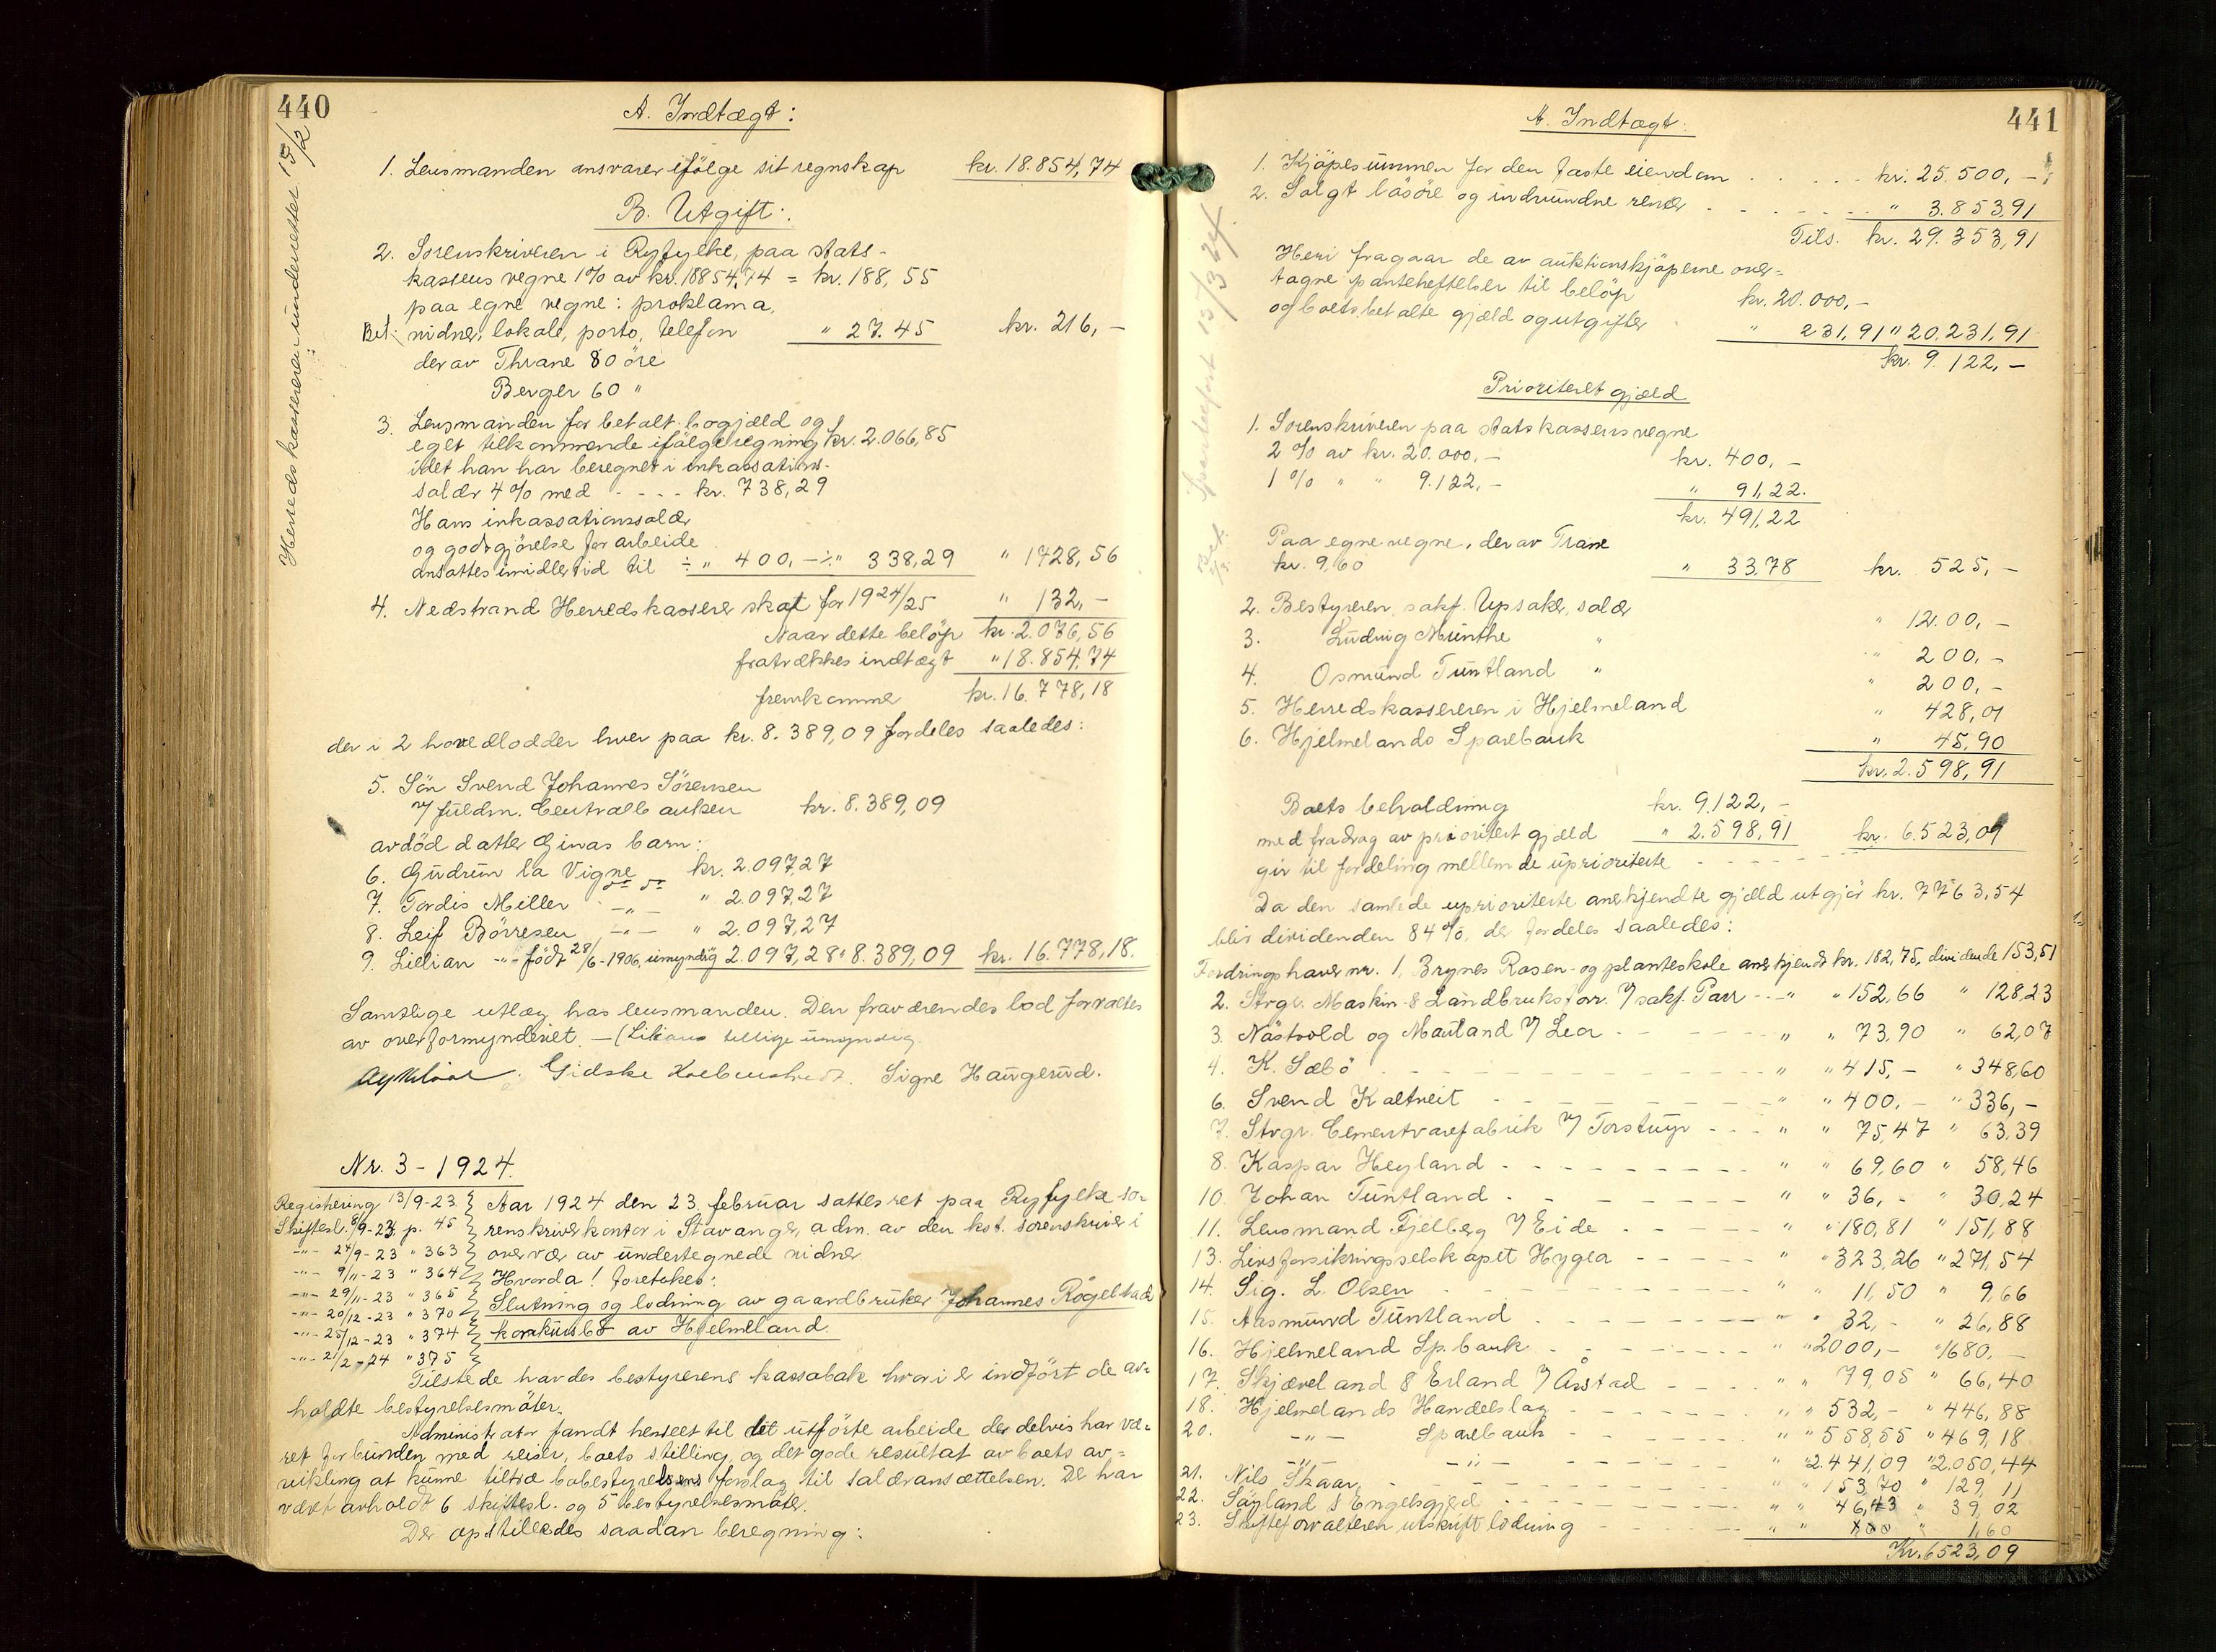 440
Herredskassereren underretter 13/2
A. Indtægt:
1. Lensmanden ansvarer ifølge sit regnskap kr. 18.854,74
B. Utgift:
2. Sorenskriveren i Ryfylke, paa stats-
kassens vegne 1% av kr. 18854,74 = kr. 188,55
paa egne vegne: proklama,
Bet. vidner, lokale, porto, telefon " 27.45 kr. 216,-
derav Thrane 80 öre
Berger 60 "
3. Lensmanden for betalt bogjæld og
eget tilkommende ifølge regning kr. 2.066,85
idet han har beregnet i inkassations-
salær 4% med - - - - kr. 738,29
Hans inkassationssalær
og godtgjörelse for arbeide
ansattes imidlertid til ÷ " 400,- ÷ " 338,29 " 1728,56
4. Nedstrand Herredskasserer skat for 1924/25 " 132,-
Naar dette belöp kr. 2.076,56
fratrækkes indtægt " 18.854,74
fremkommer kr. 16.778,18
der i 2 hovedlodder hver paa kr. 8.389,09 fordeles saaledes:
5. Sön Svend Johannes Sörensen
v/ fuldm. Centralbanken kr. 8.389,09
avdöd datter Ginas barn:
6. Gudrun la Vigne kr. 2.097,27
7. Tordis Miller -"- " 2.097,27
8. Leif Börresen -"- " 2.097,27
9. Lilian -"- födt 28/6-1906, umyndig 2.097,28 " 8.389,09 kr. 16.778,18.
Samtlige utlæg hos lensmanden. Den fraværendes lod forvaltes
av overformynderiet. - (Lilians tillige umyndig.
Gidske Signe Haugerud.
Nr. 3 - 1924.
Registrering 13/9-23
Skiftesl. 8/9-23 p. 45
-"- 24/9-23 " 363
-"- 9/11-23 " 364
-"- 29/11-23 " 365
-"- 20/12-23 " 370
-"- 25/12-23 " 374
-"- 21/2-24 " 375
Aar 1924 den 23. februar sattes ret paa Ryfylke so-
renskriverkontor i Stavanger, adm. av den kst. sorenskriver i
overvær av undertegnede vidner
Hvorda! foretokes:
Slutning og lodning av gaardbruker Johannes Rögelstad
konkursbo av Hjelmeland.
Tilstede havdes bestyrerens kassabok hvori er indfört de av-
holdte bestyrelsesmöter.
Administrator fandt henseet til det utförte arbeide der delvis har væ-
ret forbunden med reiser, boets stilling, og det gode resultat av boets av-
vikling at kunne tiltræ bobestyrelsens forslag til salæransættelsen. Der har
været avholdt 6 skiftesl. og 5 bestyrelsesmöter.
Der opstilledes saadan beregning:
441
A. Indtægt:
1. Kjöpesummen for den faste eiendom . . . . . kr. 25.500,-
2. Solgt lösöre og indvundne renter - - - - - - " 3.853,91
Tils. kr. 29.353,91
Heri fragaar de av auktionskjöperne over-
tagne panteheftelser til belöp kr. 20.000,-
og boets betalte gjæld og utgifter " 231,91 " 20.231,91
kr. 9.122,-
Prioritert gjæld
1. Sorenskriveren paa statskassens vegne
2% av kr. 20.000,- kr. 400,-
1% " " 9.122,- " 91,22.
kr. 491,22
Paa egne vegne, derav Trane
kr. 9,60 " 33,78 kr. 525,-
2. Bestyreren, sakf. Upsaker, salær " 1200,-
3. Ludvig Munthe " " 200,-
4. Osmund Tuntland " " 200,-
5. Herredskassereren i Hjelmeland " 428,01
6. Hjelmelands Sparebank " 45,90
kr. 2.598,91
Boets beholdning kr. 9.122,-
med fradrag av prioritert gjæld " 2.598,91 kr. 6.523,09
gir til fordeling mellem de uprioriterte - - - - -
Da den samlede uprioriterte anerkjendte gjæld utgjör kr. 7763,54
blir dividenden 84%, der fordeles saaledes:
Fordringshaver nr. 1, Brynes Rosen- og planteskole anerkjendt kr. 182,75, dividende 153,51
2. Stvgr. Maskin- & Landbruksforr. v/ sakf. Parr - - " " 152,66 " 128,23
3. Nästvold og Mauland v/ Lea - - - - " " 73,90 " 62,07
4. K. Sæbö - - - - " " 415,- " 348,60
6. Svend Kaltveit - - - - " " 400,- " 336,-
7. Stvgr. Cementvarefabrik v/ Torstrup - - - " " 75,47 " 63,39
8. Kaspar Heyland - - - - " " 69,60 " 58,46
10. Johan Tuntland - - - - " " 36,- " 30,24
11. Lensmand Fjelberg v/ Eide - - - - " " 180,81 " 151,88
13. Livsforsikringsselskapet Hygea - - - - " " 323,26 " 271,54
14. Sig. L. Olsen - - - - " 11,50 " 9,66
15. Aasmund Tuntland - - - - " " 32,- " 26,88
16. Hjelmeland Sp.bank - - - - " " 2000,- " 1680,-
17. Skjæveland & Erland v/ Årstad - - - - " " 79,05 " 66,40
18. Hjelmelands Handelslag - - - - " " 532,- " 446,88
20. -"- Sparebank - - - - " " 558,55 " 469,18
-"- -"- " 2.441,09 " 2.050,44
21. Nils Skaar - - - - " " 153,70 " 129,11
22. Söyland & Engelsgjerd - - - - " " 46,43 " 39,02
23. Skifteforvalteren utskrift lodning - - - - " " 1,60
Kr. 6523,09